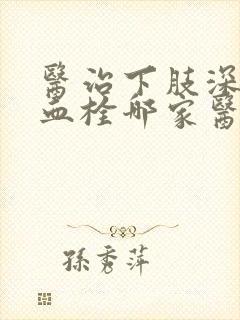 醫治下肢深
血栓哪家醫
孫秀萍